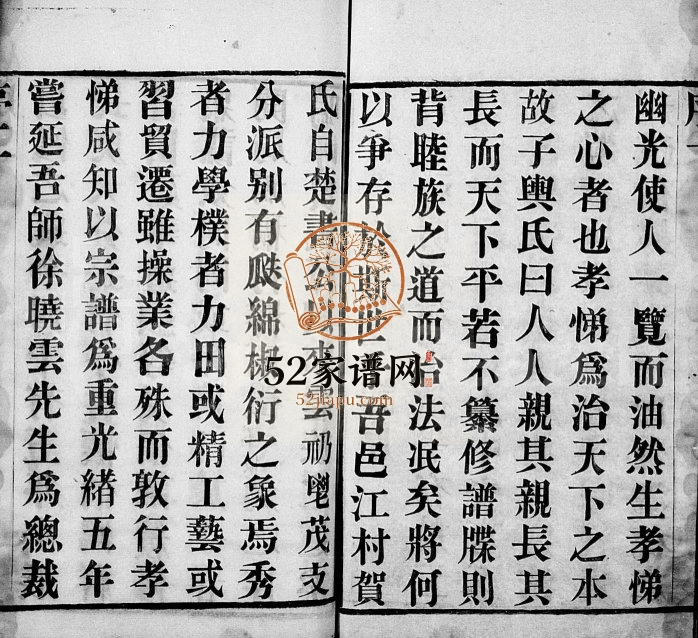 幽光使人一覽而油然生孝悌
之心者也孝悌爲治天下之本
故子輿氏曰人人親其親長其
長而天下平若不纂修譜牒則
背睦族之道而治法泯矣將何
以爭存於斯世 吾邑江村賀
氏自楚書公 來雲礽 茂支
分派别有瓞綿椒衍之象焉秀
者力學樸者力田或精工藝或
習貿遷雖操業各殊而敦行孝
悌咸知以宗譜爲重光緒五年
嘗延吾師徐曉雲先生爲總裁
52家谱网
52jiapu.com